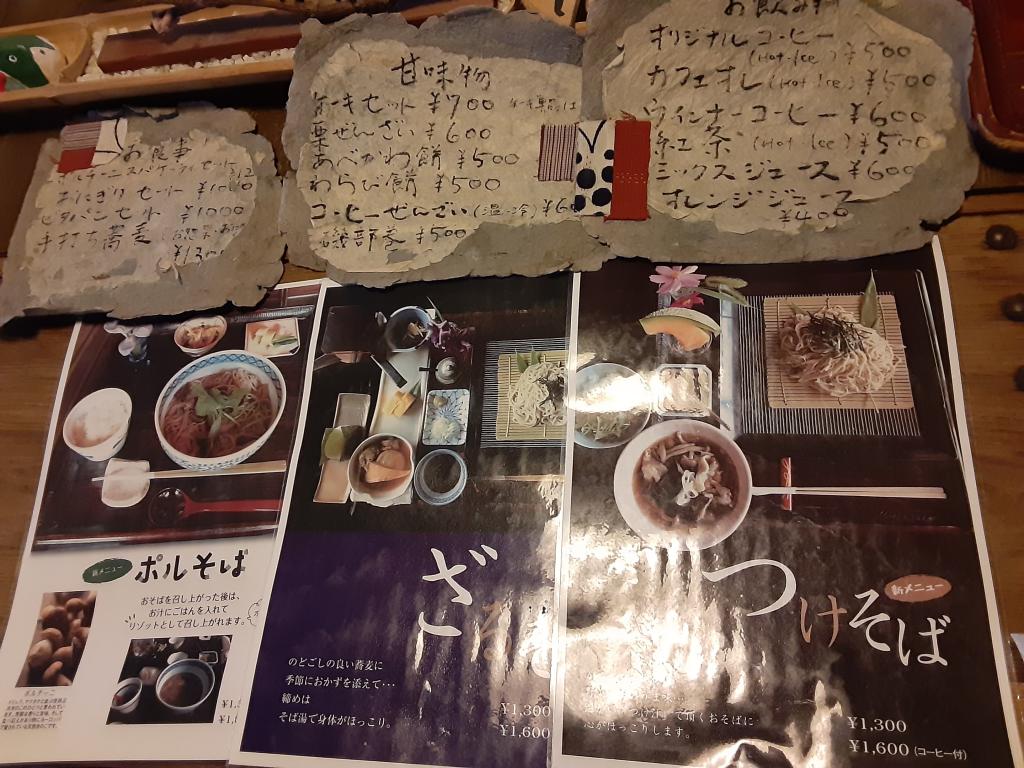 お食事
おにぎりセット ¥1000
ピタパンセット ¥1000
手打ち蕎麦
¥1300
甘味物
ケーキセット ¥700
栗ぜんざい ¥600
あべかわ餅 ¥500
わらび餅 ¥500
コーヒーぜんざい (温・冷)
磯部巻 ¥500
お飲み料
オリジナルコーヒー
(Hot・Ice) ¥500
カフェオレ (Hot Ice) ¥500
ウィンナーコーヒー ¥600
紅茶 (Hot Ice) ¥500
ミックスジュース ¥600
オレンジジュース
¥400
新メニュー
ポルそば
おそばを召し上がった後は、
お汁にごはんを入れて
リゾットとして召し上がれます。
ポルチーニ
ざる
のどごしの良い蕎麦に
季節におかずを添えて・・・
締めは
そば湯で身体がほっこり。
¥1,300
¥1,600
つけそば
新メニュー
で頂くおそばに
心がほっこりします。
¥1,300
¥1,600 (コーヒー付)